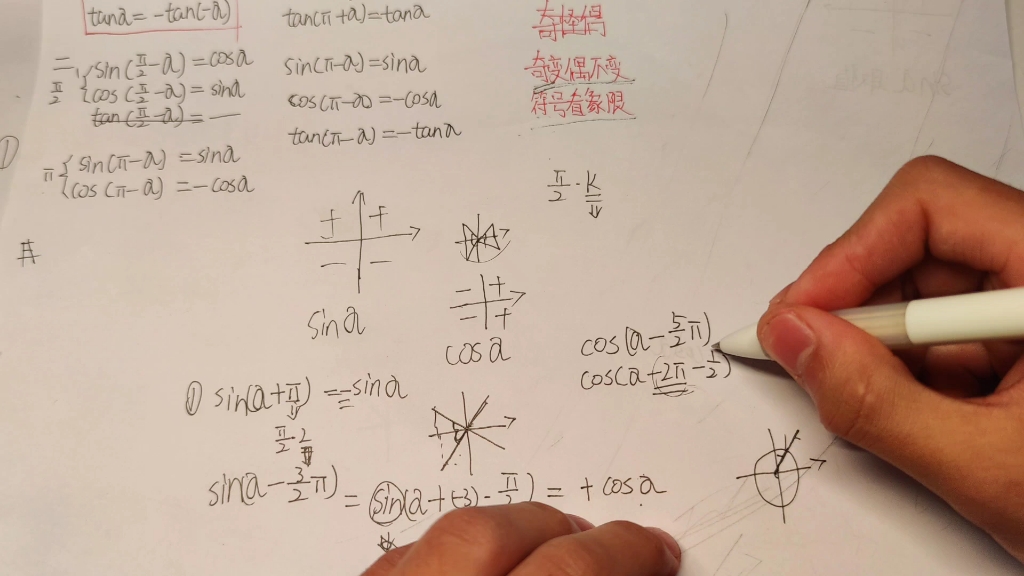 tana = -tan(-a)
tan(π+a)=tana
奇怪偶
二、
π/2 { sin(π/2-a)=cosa
cos(π/2-a)=sina
tan(π/2-a)=—
sin(π-a)=sina
cos(π-a)=-cosa
tan(π-a)=-tana
奇变偶不变
符号看象限
①
π { sin(π-a)=sina
cos(π-a)=-cosa
π/2·k
+ +
- -
sina
- +
- +
cosa
cos(a-5/2π)
① sin(a+π)=-sina
π/2·2
sin(a-3/2π)=sin(a+(-3)·π/2)=+cosa